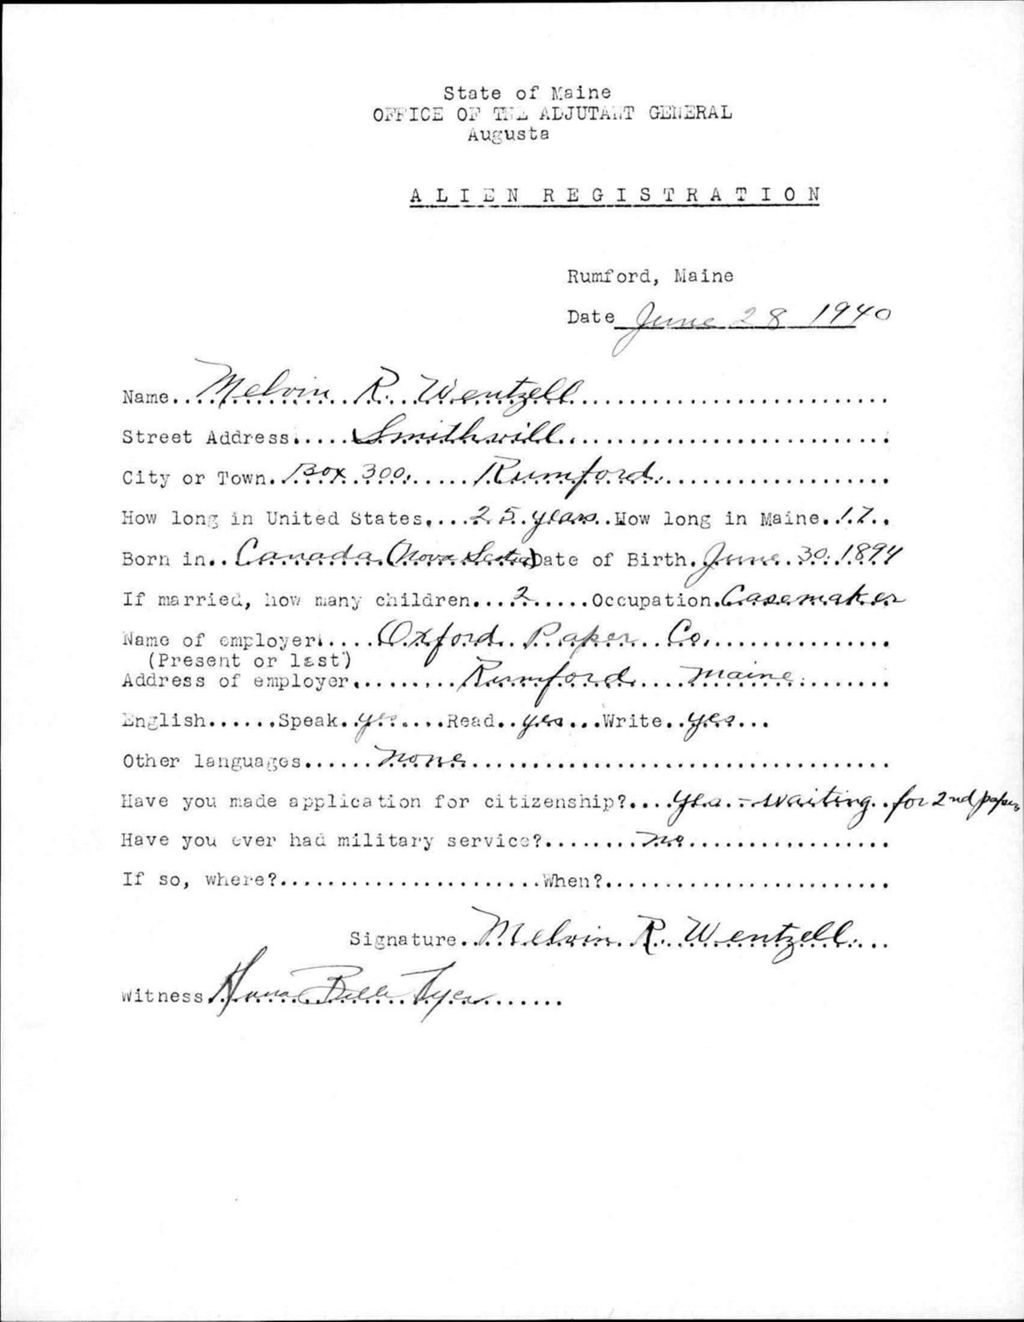 State of Maine
OFFICE OF THE ADJUTANT GENERAL
Augusta
ALIEN REGISTRATION
Rumford, Maine
Date June 28 1940
Name Melvin R. Wentzell
Street Address Smithvill
City or Town Box 300, Rumford
How long in United States 25 years How long in Maine 17
Born in Canada (Nova Scotia) Date of Birth June 30 1894
If married, how many children 2 Occupation Casemaker
Name of employer Oxford Paper Co.
(Present or last)
Address of employer Rumford Maine
English Speak yes Read yes Write yes
Other languages none
Have you made application for citizenship? Yes - waiting for 2nd papers
Have you ever had military service? no
If so, where? When?
Signature Melvin R. Wentzell
Witness Belle